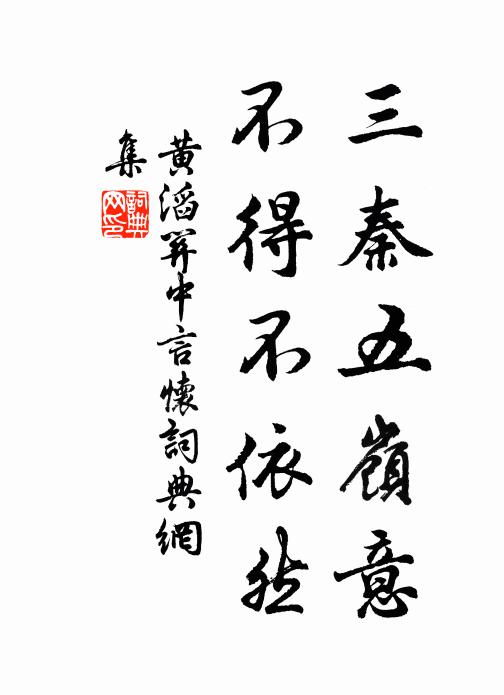 三秦五嶺意
不得不依然
黃滔關中言懷詞典網
集
詞典
网印